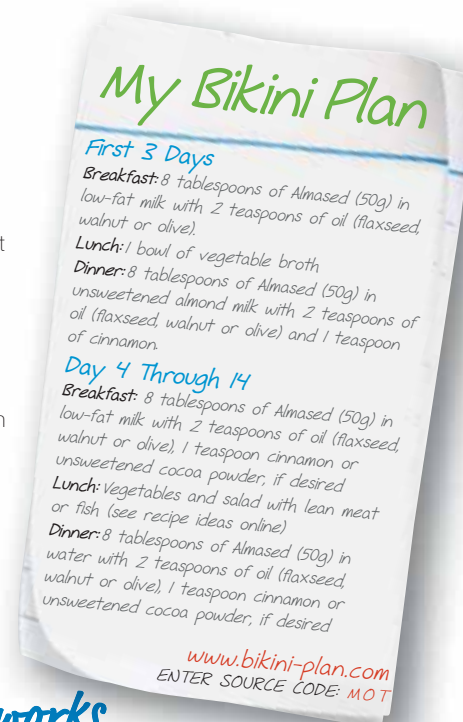 My Bikini Plan
First 3 Days
Breakfast: 8 tablespoons of Almased (50g) in
low-fat milk with 2 teaspoons of oil (flaxseed,
walnut or olive).
Lunch: 1 bowl of vegetable broth
Dinner: 8 tablespoons of Almased (50g) in
unsweetened almond milk with 2 teaspoons of
oil (flaxseed, walnut or olive) and 1 teaspoon
of cinnamon.
Day 4 Through 14
Breakfast: 8 tablespoons of Almased (50g) in
low-fat milk with 2 teaspoons of oil (flaxseed,
walnut or olive), 1 teaspoon cinnamon or
unsweetened cocoa powder, if desired
Lunch: Vegetables and salad with lean meat
or fish (see recipe ideas online)
Dinner: 8 tablespoons of Almased (50g) in
water with 2 teaspoons of oil (flaxseed,
walnut or olive), 1 teaspoon cinnamon or
unsweetened cocoa powder, if desired
www.bikini-plan.com
ENTER SOURCE CODE: MOT